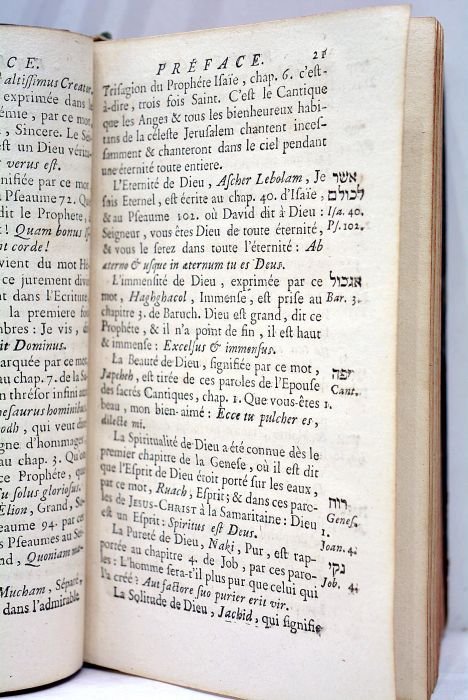 CE.
altissimus Creator.
exprimée dans le
énie, par ce mot,
, Sincere. Le Sei-
est un Dieu vérita-
verus est.
nifiée par ce mot
Pseaume 72. Que
dit le Prophete, à
! Quam bonus Is-
nt corde !
vient du mot Hé-
nt dans l'Ecriture
la premiere fois
mbres: Je vis, dit
it Dominus.
arquée par ce mot,
u chap. 7. de la Sa-
n thrésor infini aux
hesaurus hominibus.
odh, qui veut dire
gne d'hommages,
au chap. 3. Qu'on
ce Prophéte, que
Tu solus gloriosus.
Elion, Grand, Se-
eaume 94. par ces
Pseaumes au Sei-
nd, Quoniam ma-
Mucham, Séparé,
dans l'admirable
PRÉFACE. 21
Trisagion du Prophéte Isaïe, chap. 6. c'est-
à-dire, trois fois Saint. C'est le Cantique
que les Anges & tous les bienheureux habi-
tans de la céleste Jerusalem chantent inces-
samment & chanteront dans le ciel pendant
une éternité toute entiere.
L'Eternité de Dieu, Ascher Lebolam, Je אשר
suis Eternel, est écrite au chap. 40. d'Isaïe, לכולם
& au Pseaume 102. où David dit à Dieu : Isa. 40.
Seigneur, vous êtes Dieu de toute éternité, Ps. 102.
& vous le serez dans toute l'éternité : Ab
æterno & usque in æternum tu es Deus.
L'immensité de Dieu, exprimée par ce אגכול
mot, Haghghacol, Immense, est prise au Bar. 3.
chapitre 3. de Baruch. Dieu est grand, dit ce
Prophéte, & il n'a point de fin, il est haut
& immense : Excelsus & immensus.
La Beauté de Dieu, signifiée par ce mot, יפה
Japcheh, est tirée de ces paroles de l'Epouse Cant.
des sacrés Cantiques, chap. 1. Que vous-êtes 1.
beau, mon bien-aimé : Ecce tu pulcher es,
dilecte mi.
La Spiritualité de Dieu a été connue dès le
premier chapitre de la Genese, où il est dit
que l'Esprit de Dieu étoit porté sur les eaux,
par ce mot, Ruach, Esprit; & dans ces paro- רוח
les de JESUS-CHRIST à la Samaritaine : Dieu Genes. 1.
est un Esprit : Spiritus est Deus. Joan. 4.
La Pureté de Dieu, Naki, Pur, est rap- נקי
portée au chapitre 4. de Job, par ces paro- Job. 4.
les : L'homme sera-t'il plus pur que celui qui
l'a créé ? Aut factore suo purier erit vir.
La Solitude de Dieu, Jachid, qui signifie